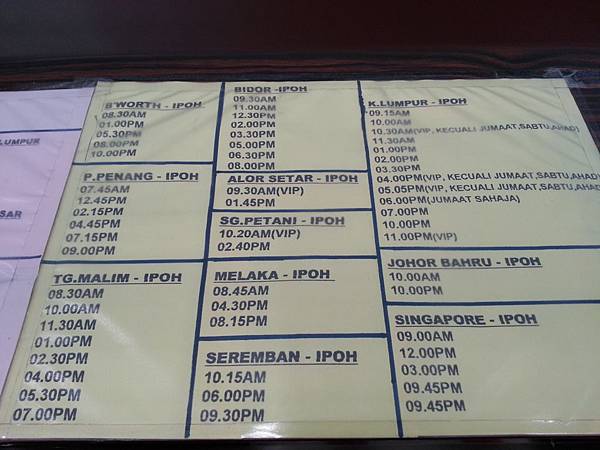 LUMPUR
SAR
B'WORTH - IPOH
08.30AM
01.00PM
05.30PM
08.00PM
10.00PM
P.PENANG - IPOH
07.45AM
12.45PM
02.15PM
04.45PM
07.15PM
09.00PM
TG.MALIM - IPOH
08.30AM
10.00AM
11.30AM
01.00PM
02.30PM
04.00PM
05.30PM
07.00PM
BIDOR -IPOH
09.30AM
11.00AM
12.30PM
02.00PM
03.30PM
05.00PM
06.30PM
08.00PM
ALOR SETAR - IPOH
09.30AM(VIP)
01.45PM
SG.PETANI - IPOH
10.20AM(VIP)
02.40PM
MELAKA - IPOH
08.45AM
04.30PM
08.15PM
SEREMBAN - IPOH
10.15AM
06.00PM
09.30PM
K.LUMPUR - IPOH
09.15AM
10.00AM
10.30AM(VIP, KECUALI JUMAAT,SABTU,AHAD)
11.30AM
01.00PM
02.00PM
03.30PM
04.00PM(VIP, KECUALI JUMAAT,SABTU,AHAD)
05.05PM(VIP, KECUALI JUMAAT,SABTU,AHAD)
06.00PM(JUMAAT SAHAJA)
07.00PM
10.00PM
11.00PM(VIP)
JOHOR BAHRU - IPOH
10.00AM
10.00PM
SINGAPORE - IPOH
09.00AM
12.00PM
03.00PM
09.45PM
09.45PM